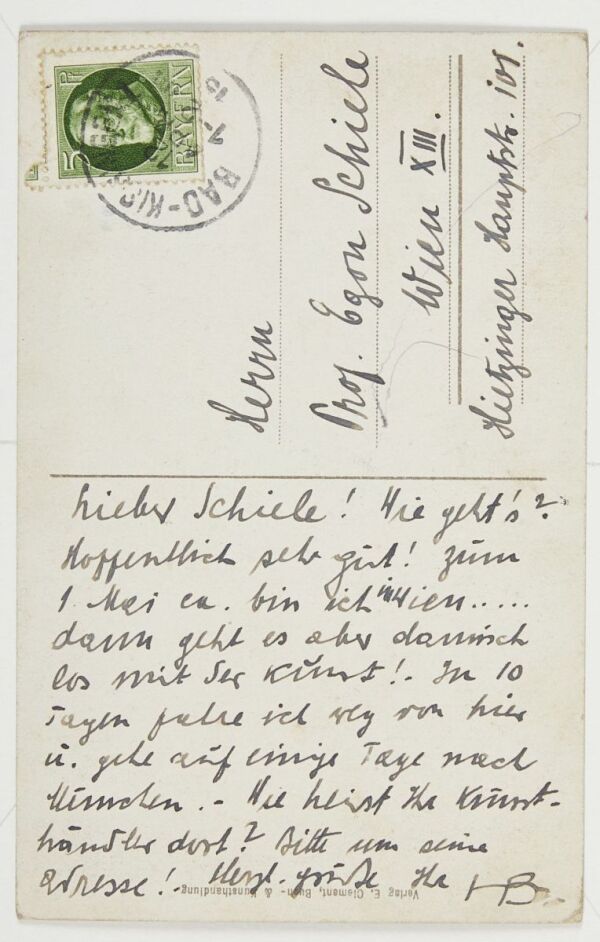 5 Pf
BAYERN
BAD-KIS
Herrn
Prof. Egon Schiele
Wien XIII.
Hietzinger Hauptstr. 101.
Lieber Schiele! Wie geht's?
Hoffentlich sehr gut! Zum
1 Mai ca. bin ich in Wien.....
dann geht es aber damisch
los mit der Kunst!- In 10
Tagen fahre ich weg von hier
u. gehe auf einige Tage nach
München.- Wie heisst Ihr Kunst-
händler dort? Bitte um seine
Adresse!- Herzl. grüße Ihr HB.
Verlag E. Clement, Buch- & Kunsthandlung